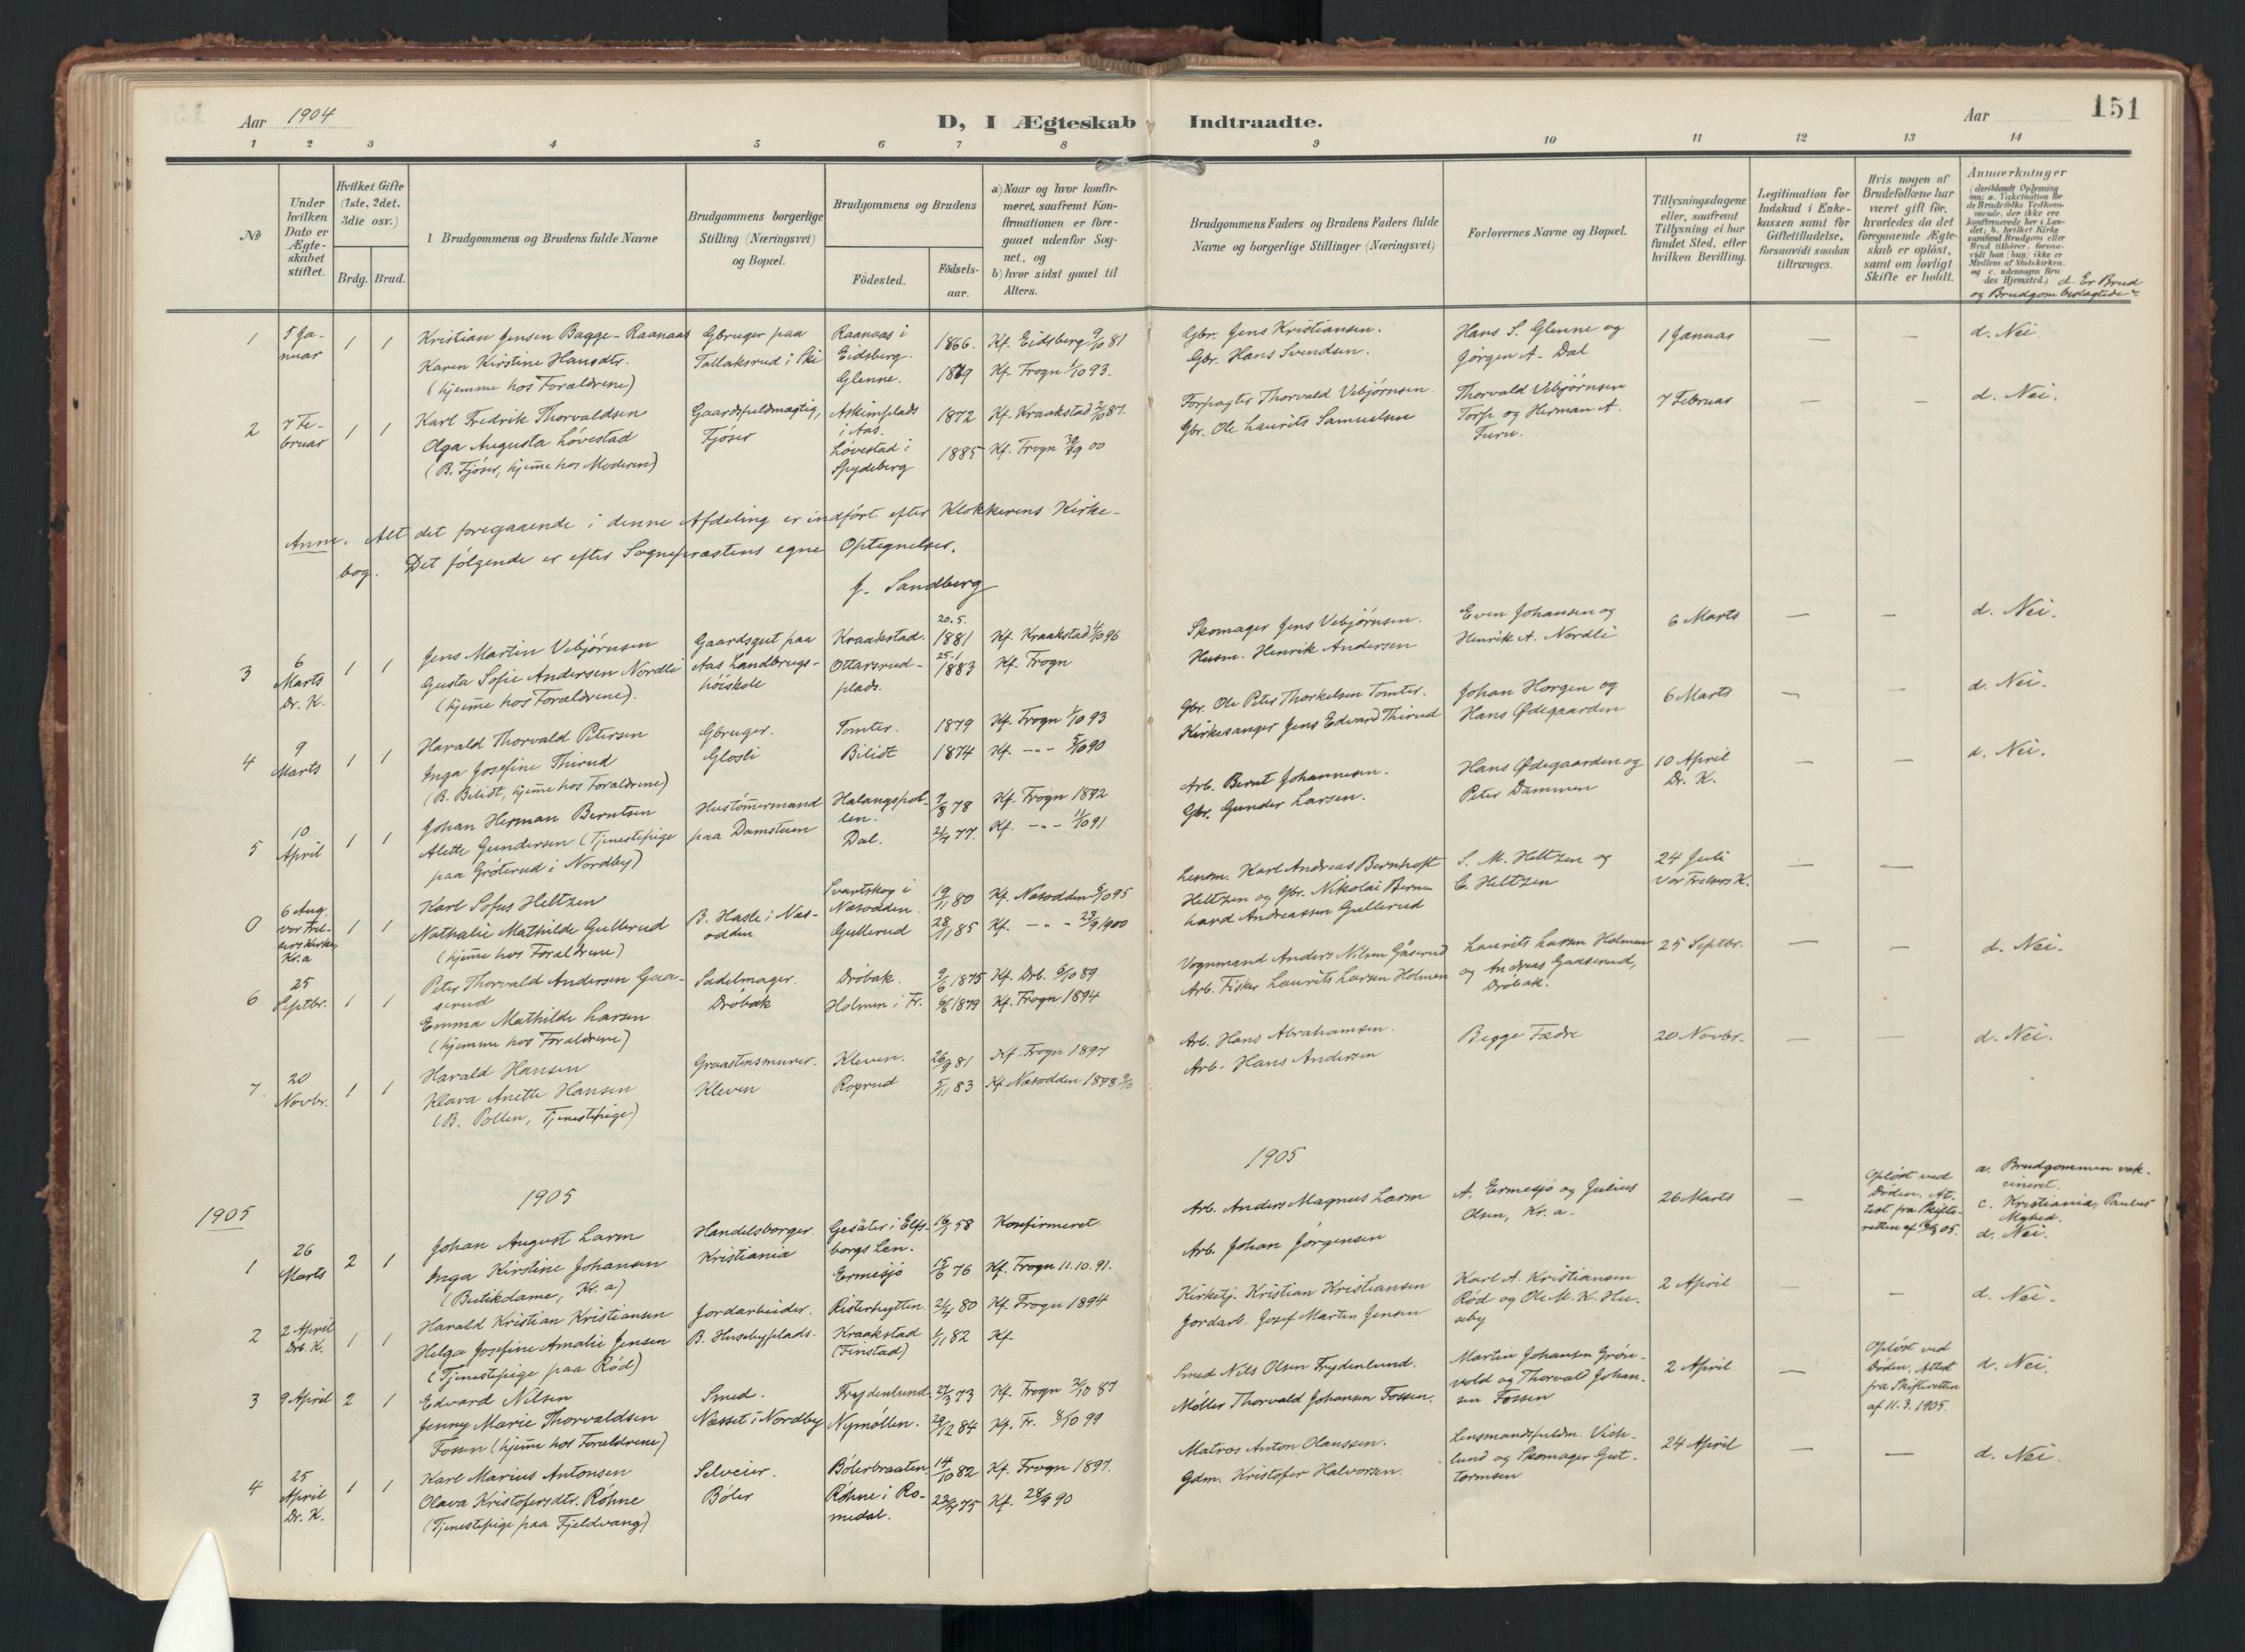 Aar 1904
D, I Ægteskab Indtraadte.
Aar
151
1 2 3 4 5 6 7 8 9 10 11 12 13 14
No
Under hvilken Dato er Ægteskabet stiftet.
Hvilket Gifte (1ste, 2det, 3die osv.)
Brdg. Brud.
Brudgommens og Brudens fulde Navne
Brudgommens borgerlige Stilling (Næringsvei) og Bopæl.
Brudgommens og Brudens
Födested.
Födsels-aar.
a) Naar og hvor konfirmeret, saafremt Konfirmationen er foregaaet udenfor Sognet, og
b) hvor sidst gaaet til Alters.
Brudgommens Faders og Brudens Faders fulde Navne og borgerlige Stillinger (Næringsvei)
Forlovernes Navne og Bopæl.
Tillysningsdagene eller, saafremt Tillysning ei har fundet Sted, efter hvilken Bevilling.
Legitimation for Indskud i Enkekassen samt for Giftetilladelse, forsaavidt saadan tiltrænges.
Hvis nogen af Brudefolkene har været gift för, hvorledes da det foregaaende Ægteskab er oplöst, samt om lovligt Skifte er holdt.
Anmærkninger
d. Er Brud og Brudgom beslægtede
1 5 Januar 1 1
Kristian Jensen Bagge-Raanaas
Karen Kirstine Hansdtr.
(hjemme hos Forældrene)
Gbruger paa
Tallaksrud i Ski
Raanaas i
Eidsberg.
Glenne.
1866. Kf. Eidsberg 9/10 81
1879 Kf. Frogn 1/10 93.
Gbr. Jens Kristiansen.
Gbr. Hans Svendsen.
Hans S. Glenne og
Jørgen A. Dal
1 Januar — — d. Nei.
2 7 Februar 1 1
Karl Fredrik Thorvaldsen
Olga Augusta Løvestad
(B. Fjøser, hjemme hos Moderen)
Gaardsfuldmægtig,
Fjøser
Askimplads
i Aas.
Løvestad i
Spydeberg
1872 Kf. Kraakstad 2/10 87.
1885 Kf. Frogn 30/9 00
Forpagter Thorvald Vebjørnsen.
Gbr. Ole Laurits Samuelsen
Thorvald Vebjørnsen
Torp og Herman A.
Furu.
7 Februar — — d. Nei.
Anm. Alt det foregaaende i denne Afdeling er indført efter Klokkerens Kirke-
bog. Det følgende er efter Sognepræstens egne Optegnelser.
J. Sandberg
3 6 Marts Dr. K. 1 1
Jens Martin Vebjørnsen
Gusta Sofie Andersen Nordli
(hjemme hos Forældrene).
Gaardsgut paa
Aas Landbrugs-
høiskole
Kraakstad.
Ottarsrud-
plads.
20.5. 1881 Kf. Kraakstad 4/10 96
25.1 1883 Kf. Frogn
Skomager Jens Vebjørnsen.
Husm. Henrik Andersen
Even Johansen og
Henrik A. Nordli
6 Marts — — d. Nei.
4 9 Marts 1 1
Harald Thorvald Petersen
Inga Josefine Thirud
(B. Bilidt, hjemme hos Forældrene)
Gbruger.
Glosli
Tomter.
Bilidt
1879 Kf. Frogn 1/10 93
1874 Kf. -„- 5/10 90
Gbr. Ole Peter Thorkelsen Tomter.
Kirkesanger Jens Edvard Thirud
Johan Horgen og
Hans Ødegaarden
6 Marts — — d. Nei.
5 10 April 1 1
Johan Herman Berntsen
Alette Gundersen (Tjenestepige
paa Grøterud i Nordby)
Hustømmermand
paa Damstuen
Halangspol-
len.
Dal.
7/8 78 Kf. Frogn 1892
2/4 77. Kf. -„- 11/10 91
Arb. Bernt Johannesen.
Gbr. Gunder Larsen.
Hans Ødegaarden og
Peter Dammen
10 April
Dr. K.
— — d. Nei.
0 6 Aug. Vor Frelsers Kirke Kr.a 1 1
Karl Sofus Heltzen
Nathalie Mathilde Gullerud
(hjemme hos Forældrene)
B. Hasle i Næs-
odden
Svartskog i
Næsodden.
Gullerud
19/11 80 Kf. Næsodden 6/10 95
28/11 85 Kf. -„- 23/9 1900
Lensm. Karl Andreas Bernhoft
Heltzen og Gbr. Nikolai Bern-
hard Andreassen Gullerud
S. M. Heltzen og
C. Heltzen
24 Juli
Vor Frelsers K.
— —
6 25 Septbr. 1 1
Peter Thorvald Andersen Gaa-
serud
Emma Mathilde Larsen
(hjemme hos Forældrene)
Sadelmager.
Drøbak
Drøbak.
Holmen i Fr.
9/6 1875 Kf. Drb. 6/10 89
6/6 1879 Kf. Frogn 1894
Vognmand Anders Nilsen Gåserud
Arb. Fisker Laurits Larsen Holmen
Laurits Larsen Holmen
og Andreas Gaaserud,
Drøbak.
25 Septbr. — — d. Nei.
7 20 Novbr. 1 1
Harald Hansen
Klara Anette Hansen
(B. Pollen, Tjenestepige)
Graastensmurer.
Kleven
Kleven.
Rogrud
26/9 81 Kf. Frogn 1897
5/11 83 Kf. Næsodden 1898 2/10
Arb. Hans Abrahamsen.
Arb. Hans Andersen
Begge Fædre
20 Novbr. — — d. Nei.
1905
1905
1905
1 26 Marts 2 1
Johan August Larm
Inga Kirstine Johansen
(Butikdame, Kr.a)
Handelsborger.
Kristiania
Gesäter i Elfs-
borgs Len.
Ermesjø
16/1 58 Konfirmeret.
15/6 76 Kf. Frogn 11.10.91.
Arb. Anders Magnus Larm
Arb. Johan Jørgensen
A. Ermesjø og Julius
Olsen, Kr.a.
26 Marts —
Opløst ved
Døden. At-
test fra Skifte-
retten af 05.
a. Brudgommen vak-
cineret.
c. Kristiania, Paulus
Mghed.
d. Nei.
2 2 April Drb. K. 1 1
Harald Kristian Kristiansen
Helga Josefine Amalie Jensen
(Tjenestepige paa Rød)
Jordarbeider.
B. Husebyplads.
Risterhytten
Kraakstad
(Finstad)
2/4 80 Kf. Frogn 1894
1/1 82 Kf.
Kirketj. Kristian Kristiansen
Jordarb. Josef Martin Jensen
Karl A. Kristiansen
Rød og Ole M. K. Hu-
seby
2 April — — d. Nei.
3 9 April 2 1
Edvard Nilsen
Jenny Marie Thorvaldsen
Fossen (hjemme hos Forældrene)
Smed.
Næsset i Nordby
Frydenlund.
Nymøllen.
21/3 73 Kf. Frogn 2/10 87
29/12 84 Kf. Fr. 8/10 99
Smed Nils Olsen Frydenlund.
Møller Thorvald Johansen Fossen.
Martin Johansen Grøn-
vold og Thorvald Johan-
sen Fossen
2 April —
Opløst ved
Døden. Attest
fra Skifteretten
af 11.3.1905.
d. Nei.
4 25 April Dr. K. 1 1
Karl Marius Antonsen
Olava Kristofersdtr. Røhne
(Tjenestepige paa Fjeldvang)
Selveier.
Bøler
Bølerbraaten
Røhne i Ro-
medal.
14/10 82 Kf. Frogn 1897.
75 Kf. 28/9 90
Matros Anton Olaussen.
Gdm. Kristofer Halvorsen.
Lensmandsfuldm. Vich-
lund og Skomager Gut-
tormsen
24 April — — d. Nei.